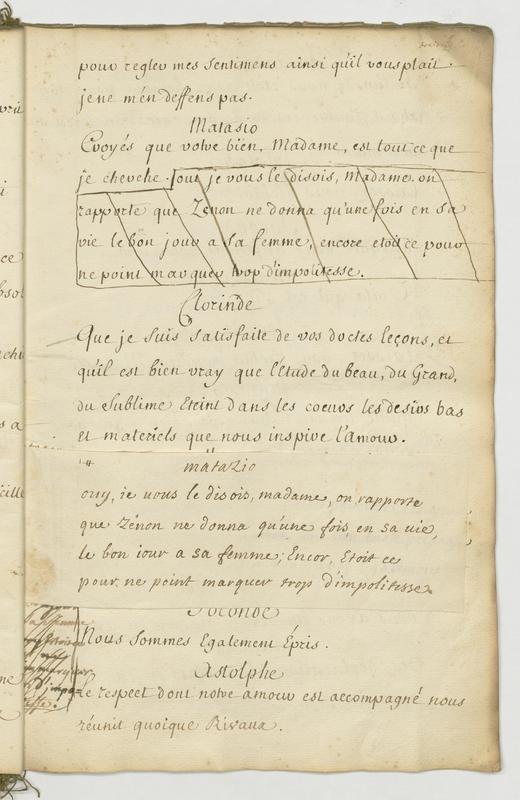 pour regler mes sentimens ainsi qu'il vous plait.
je ne m'en deffens pas.
Matasio
Croyés que votre bien, Madame, est tout ce que
je cherche. Jour je vous le disois, Madame. on
rapporte que Zenon ne donna qu'une fois en sa
vie le bon jour a sa femme, encore etoit ce pour
ne point marquer trop d'impolitesse.
Clorinde
Que je suis satisfaite de vos doctes leçons, et
qu'il est bien vray que l'étude du beau, du Grand,
du Sublime Eteint dans les coeurs les desirs bas
et materiels que nous inspire l'amour.
matazio
ouy, je vous le disois, madame, on rapporte
que Zénon ne donna qu'une fois, en sa vie,
le bon iour a sa femme; Encor, Etoit ce
pour, ne point marquer trop d'impolitesse.
Joconde
Nous sommes Egalement Épris.
Astolphe
Le respect dont notre amour est accompagné nous
réunit quoique Rivaux.